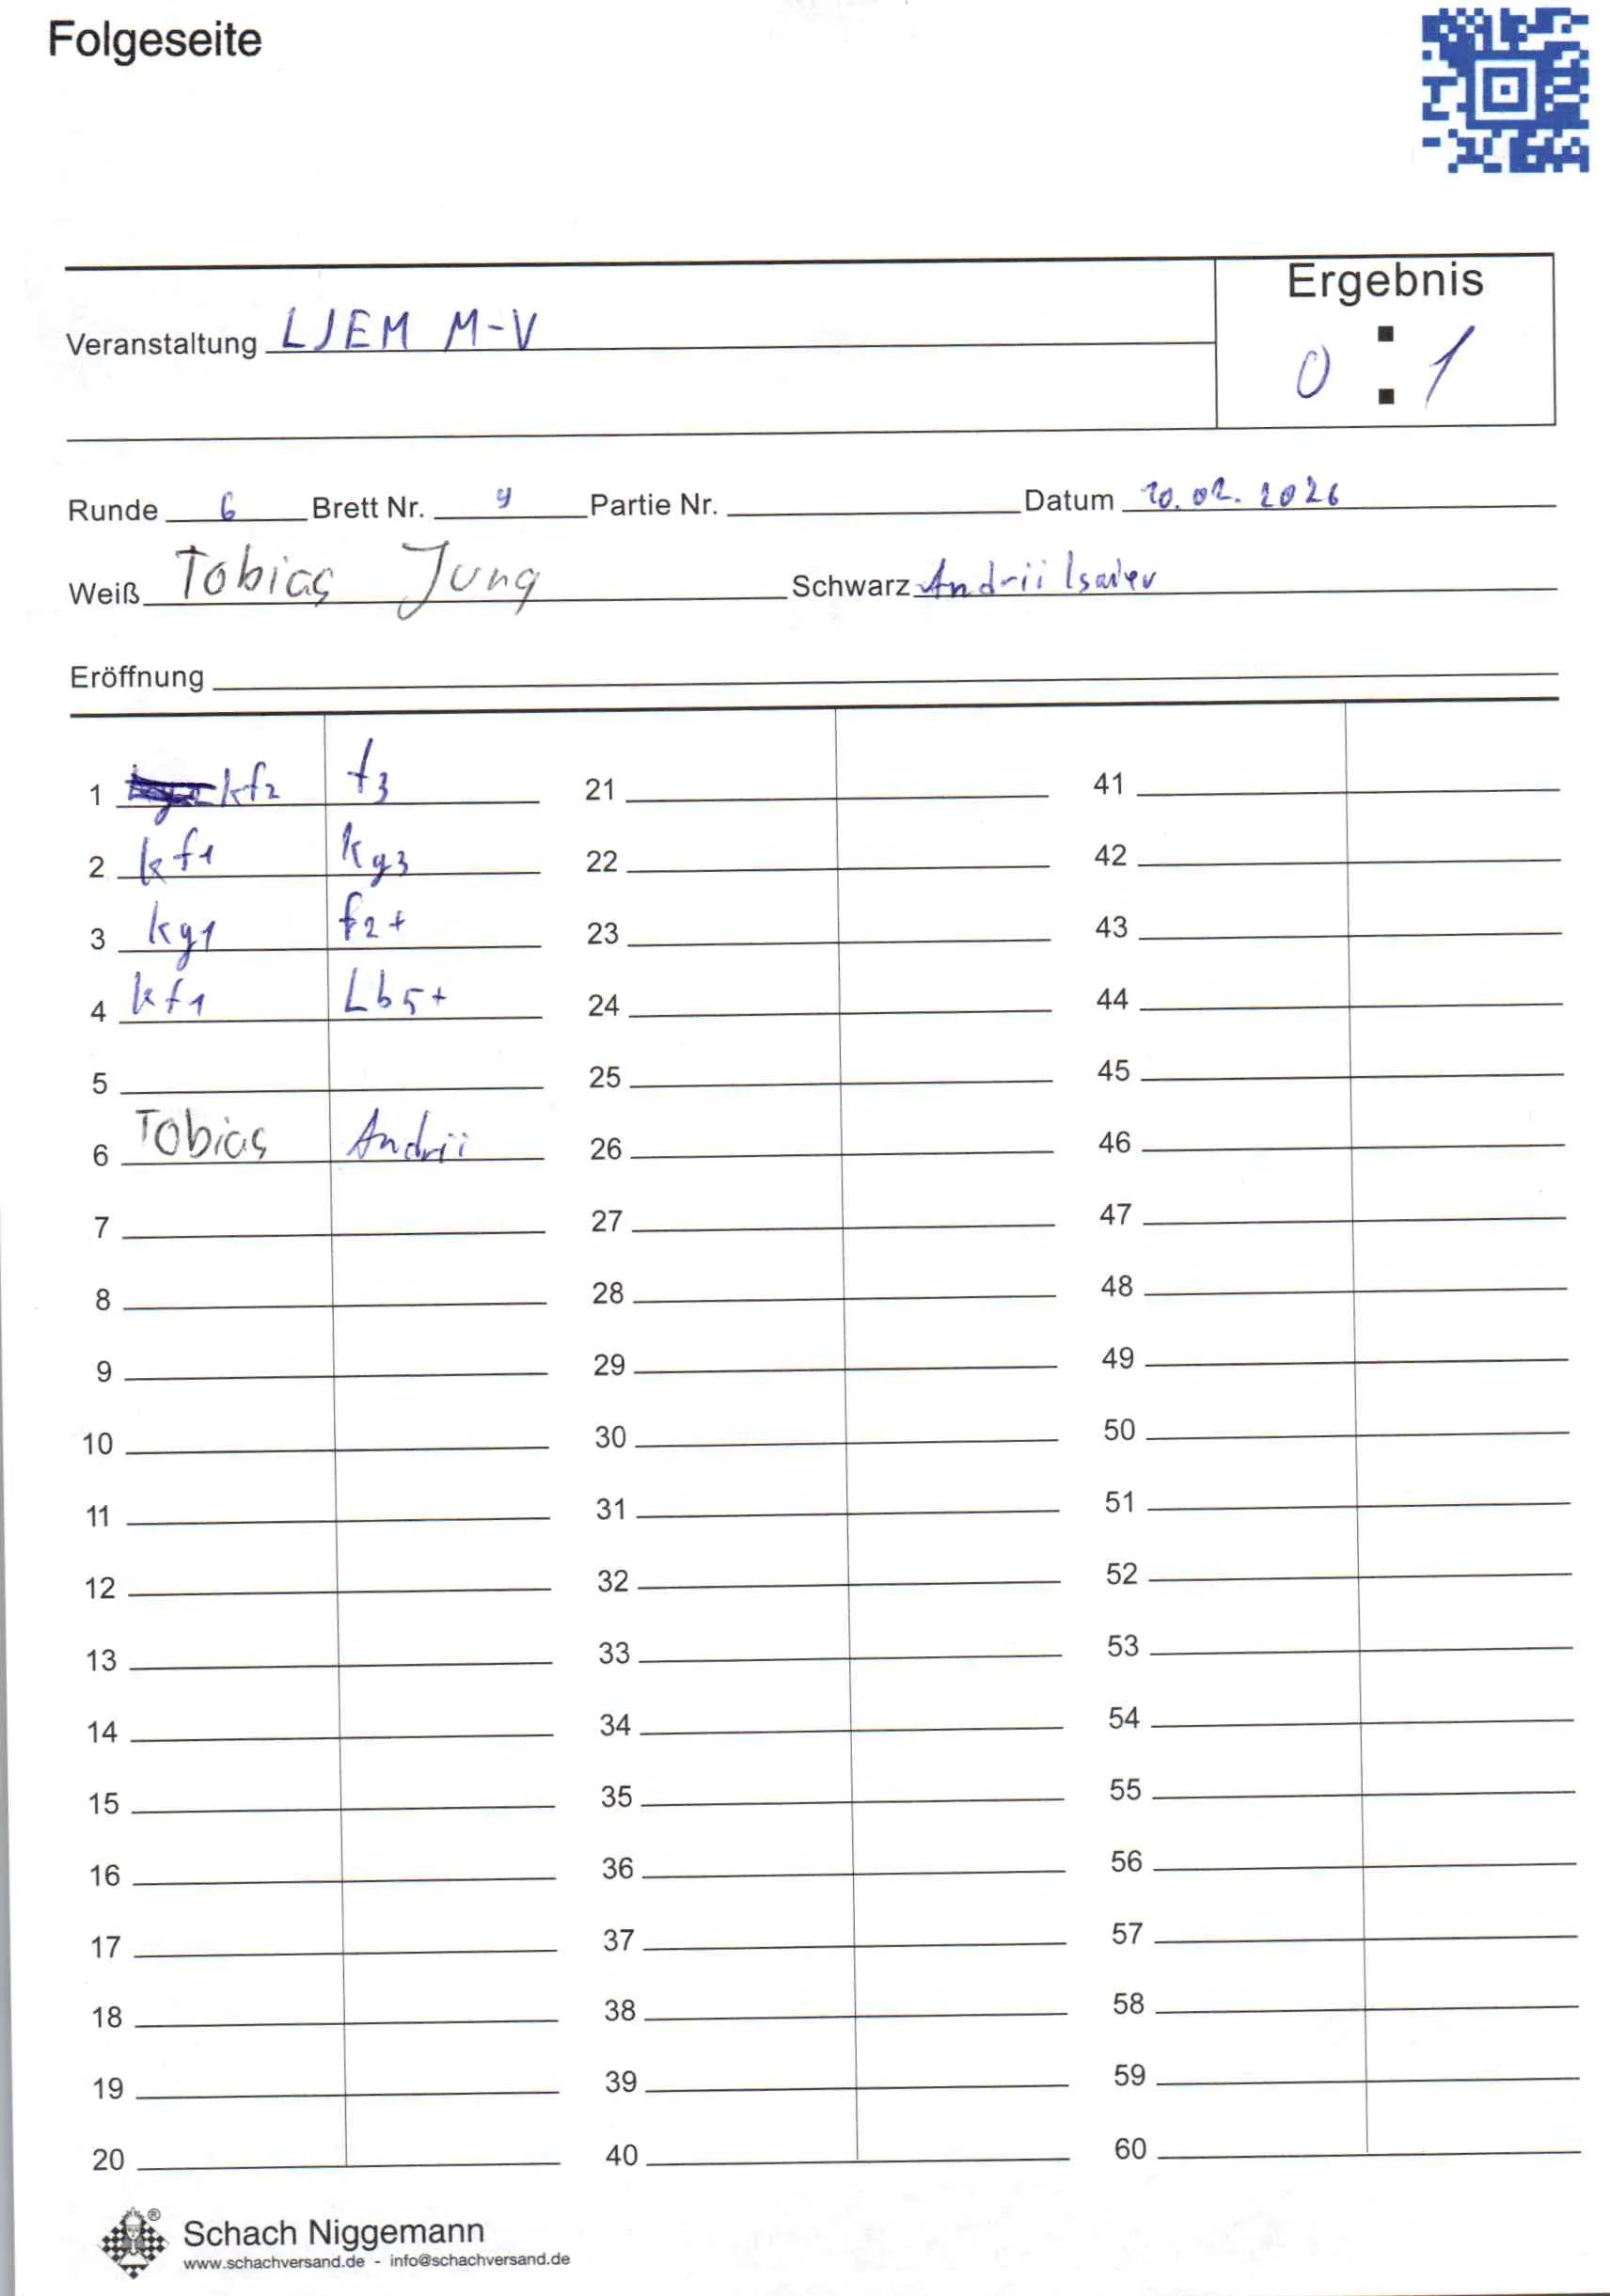 Folgeseite
Ergebnis
Veranstaltung LJEM M-V
0 : 1
Runde 6 Brett Nr. 9 Partie Nr. Datum 10.02.2026
Weiß Tobias Jung Schwarz Andrii Isaiev
Eröffnung
1 kf2 f3 21 41
2 kf1 kg3 22 42
3 kg1 f2+ 23 43
4 kf1 Lb5+ 24 44
5 25 45
6 Tobias Andrii 26 46
7 27 47
8 28 48
9 29 49
10 30 50
11 31 51
12 32 52
13 33 53
14 34 54
15 35 55
16 36 56
17 37 57
18 38 58
19 39 59
20 40 60
Schach Niggemann
www.schachversand.de - info@schachversand.de